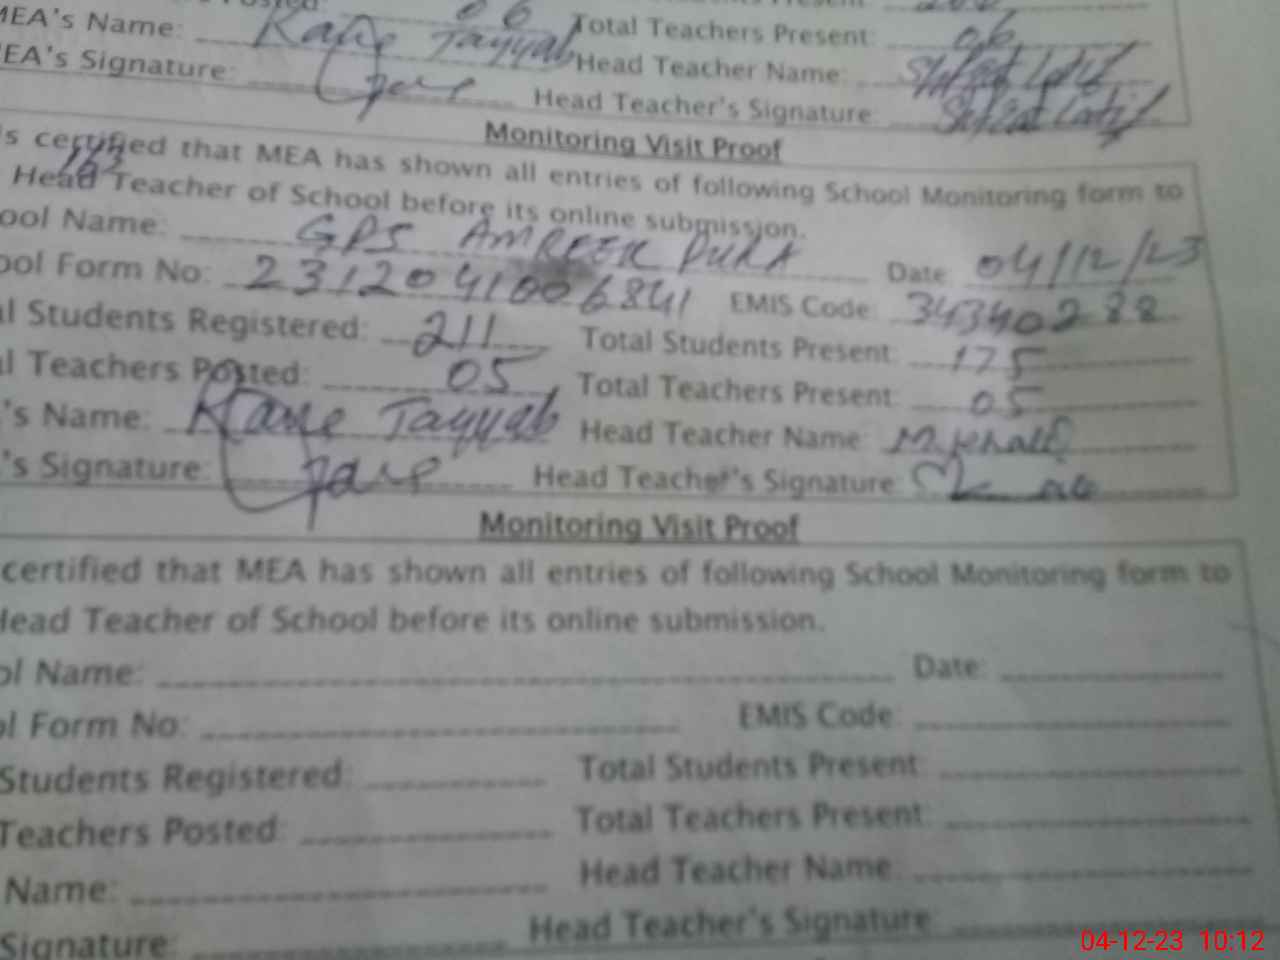 MEA's Name: Tayyab Total Teachers Present: 06
EA's Signature: Head Teacher Name:
Head Teacher's Signature:
Monitoring Visit Proof
s certified that MEA has shown all entries of following School Monitoring form to
163
Head Teacher of School before its online submission.
ool Name: GPS AMREEK PURA Date 04/12/23
ool Form No: 2312041006841 EMIS Code: 34340288
al Students Registered: 211 Total Students Present: 175
al Teachers Posted: 05 Total Teachers Present: 05
's Name: Tayyab Head Teacher Name: M. Khalid
's Signature: Head Teacher's Signature:
Monitoring Visit Proof
certified that MEA has shown all entries of following School Monitoring form to
Head Teacher of School before its online submission.
ol Name: Date:
ol Form No: EMIS Code:
Students Registered: Total Students Present:
Teachers Posted: Total Teachers Present:
Name: Head Teacher Name:
Signature: Head Teacher's Signature:
04-12-23 10:12